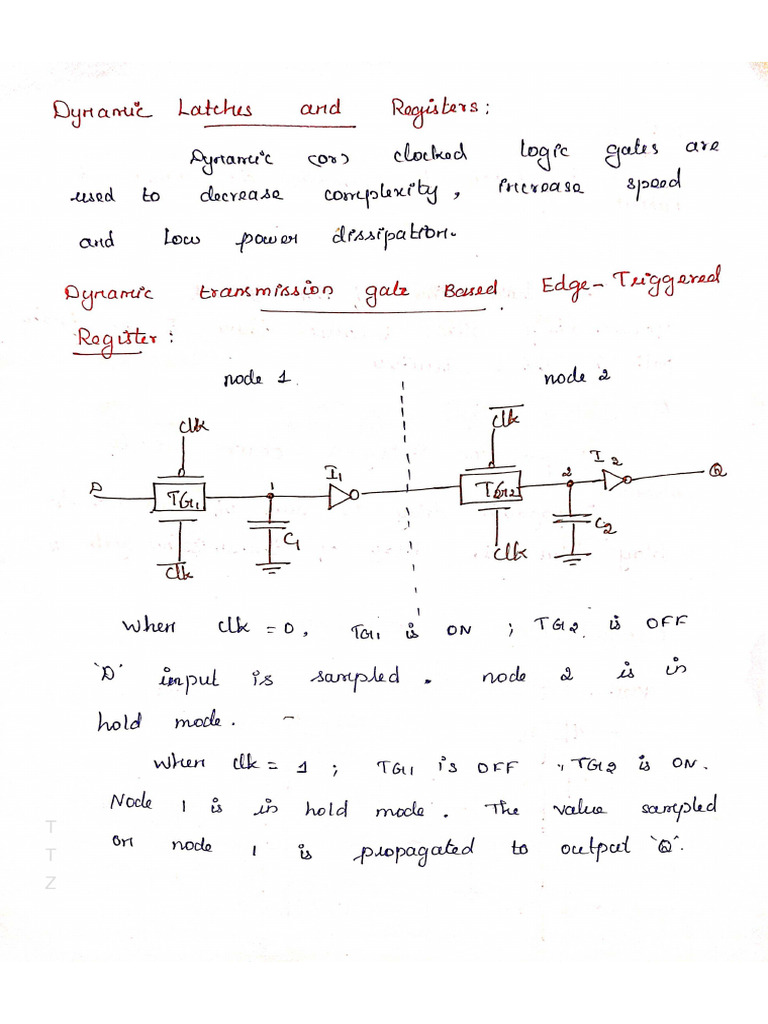 Dynamic Latches and Registers:
Dynamic (or) clocked logic gates are
used to decrease complexity, increase speed
and low power dissipation.
Dynamic transmission gate Based Edge-Triggered
Register:
node 1 node 2
clk c̅l̅k̅
D TG1 1 I1 TG2 2 I2 Q
C1 C2
c̅l̅k̅ clk
when clk = 0, TG1 is ON ; TG2 is OFF
'D' input is sampled. node 2 is in
hold mode. -
when clk = 1 ; TG1 is OFF ; TG2 is ON.
Node 1 is in hold mode. The value sampled
on node 1 is propagated to output 'Q'.
T
T
Z